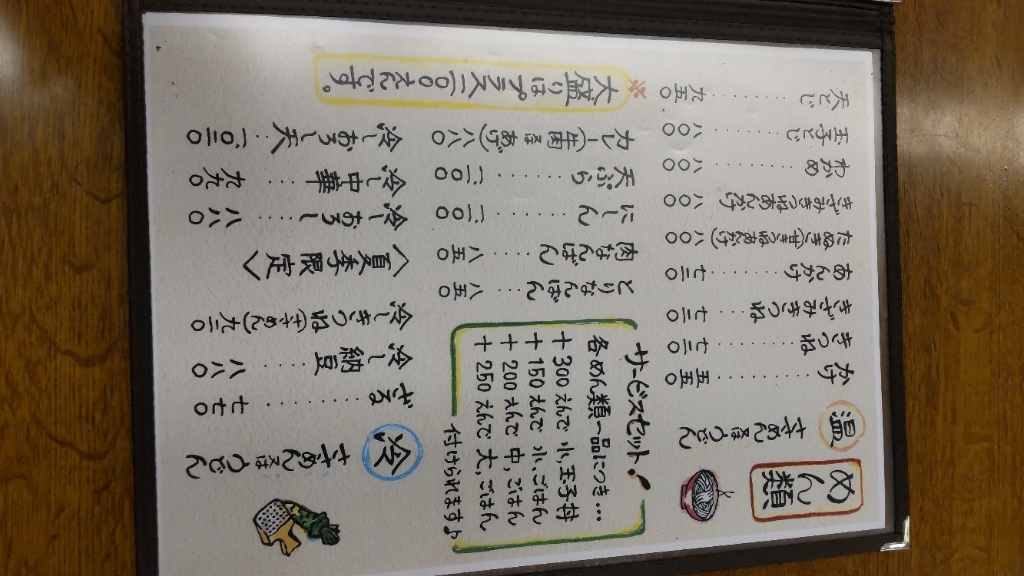 めん類
温 きしめん又はうどん
かけ ・・・・・・ 五五〇
きつね ・・・・・・ 七二〇
きざみきつね ・・・ 七二〇
あんかけ ・・・・・・ 七二〇
たぬき(甘きつねあんかけ) 八〇〇
きざみきつねあんかけ 八〇〇
わかめ ・・・・・・ 八〇〇
玉子とじ ・・・・・・ 八〇〇
天とじ ・・・・・・ 九五〇
サービスセット!
各めん類一品につき…
+300えんで 小、玉子丼
+150えんで 小、ごはん
+200えんで 中、ごはん
+250えんで 大、ごはん
付けられます♪
とりなんばん ・・・ 八五〇
肉なんばん ・・・ 八五〇
にしん ・・・・・・ 一一〇〇
天ぷら ・・・・・・ 一一〇〇
カレー(牛肉又はあげ) 八八〇
※大盛りはプラス一〇〇えんです。
冷 きしめん又はうどん
ざる ・・・・・・ 七七〇
冷し納豆 ・・・・ 八八〇
冷しきつね 九二〇
〈夏季限定〉
冷しおろし ・・・・ 八八〇
冷し中華 ・・・・・ 九九〇
冷しおろし天 ・・・ 一〇三〇